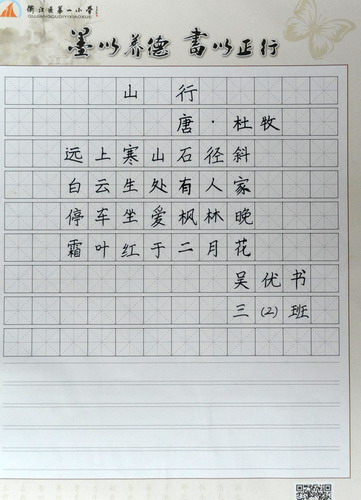 衢江区第一小学
墨以养德 书以正行
山行
唐·杜牧
远上寒山石径斜
白云生处有人家
停车坐爱枫林晚
霜叶红于二月花
吴优书
三(2)班